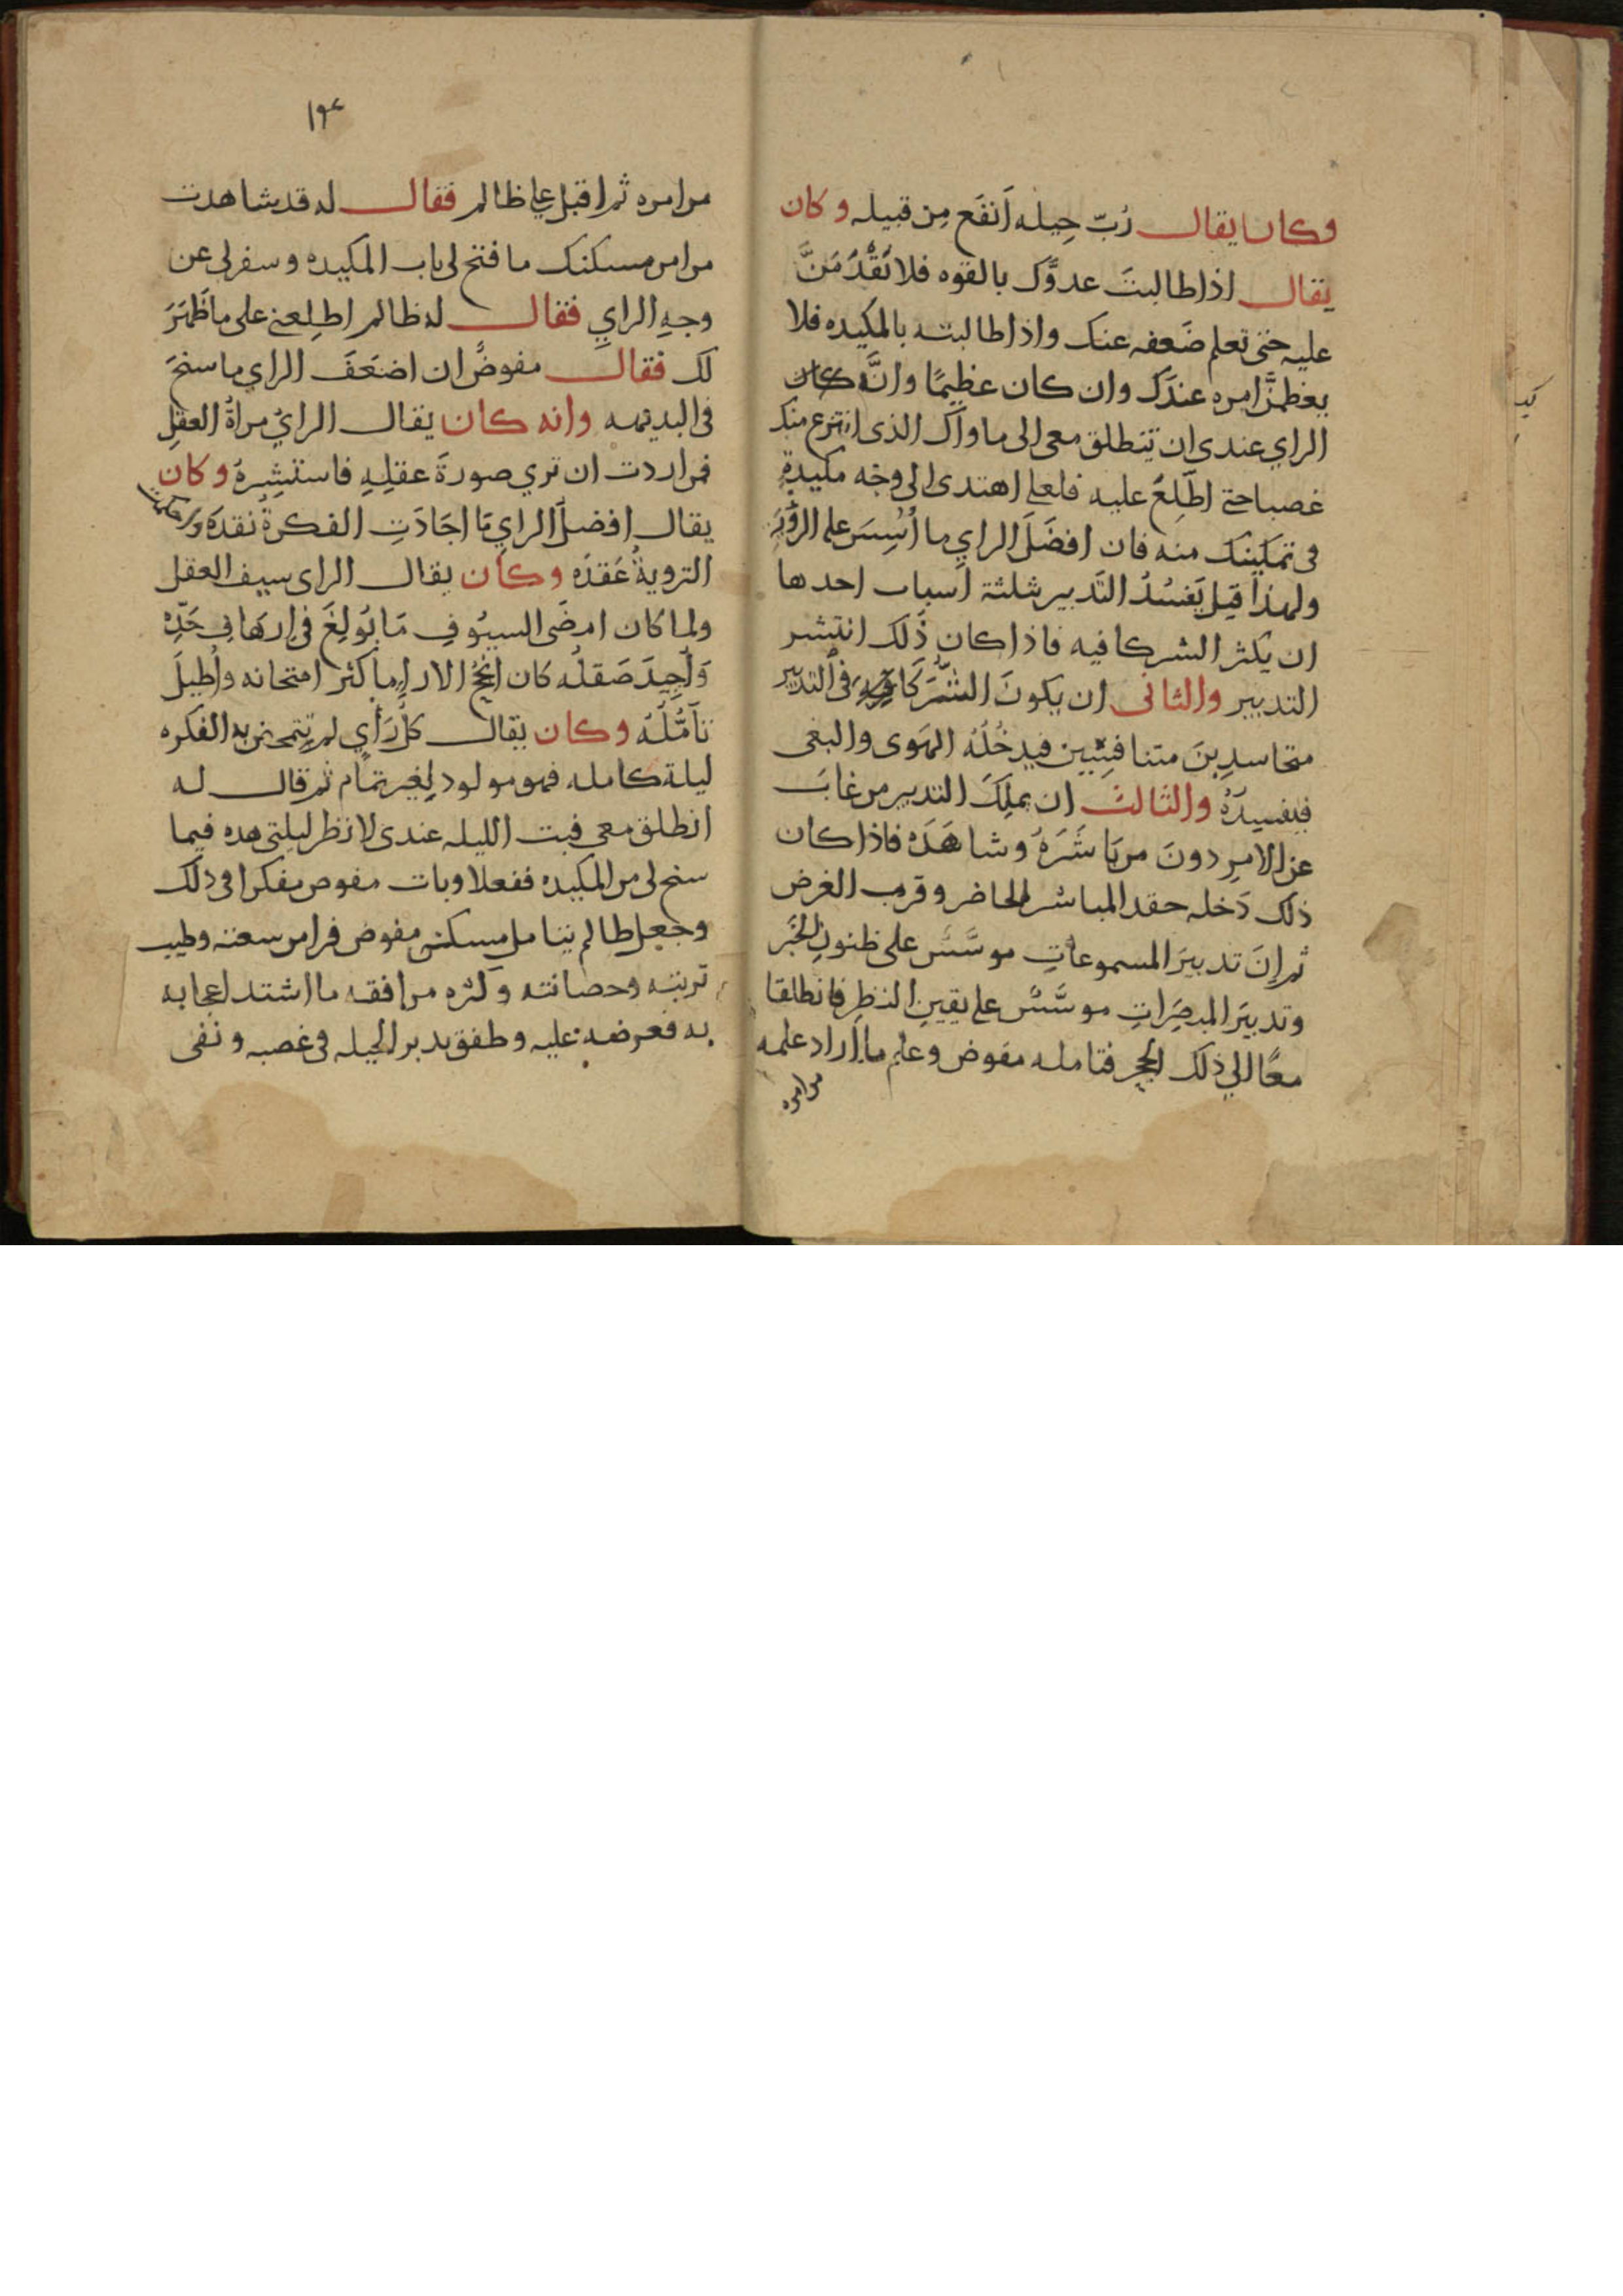 وكان يقال رُبّ حِيله اَنفَع مِن قبيله وكان
يقال اذا طالبتَ عدوَّك بالقوه فلا تَقْدُمَنَّ
عليه حتى تعلم ضَعفه عنك واذا طالبته بالمكيده فلا
يعظمنَّ امره عندَك وان كان عظيمًا وانَّه كان
الراي عندى ان تنطلق معى الى ماواك الذى انتزع منك
غصبا حتى اطّلِعَ عليه فلعلى اهتدى الى وجْه مكيدةٍ
فى تمكينك منه فان افضَلَ الراي ما اُسِّسَ على الرؤيَه
ولهذا قيل يَفسُدُ التَدبير بثلثة اَسباب احدها
ان يكثر الشركا فيه فاذا كان ذلك انتشر
التدبير والثانى ان يكونَ الشُّرَكَا فى التدبير
متحاسدِينَ متنافِسِين فيدخُلُه الهَوى والبغى
فيفسِدُهُ والثالث ان يملِكَ التدبير من غابَ
عن الامرِ دونَ من بَاشَرَهُ وشاهَدَه فاذا كان
ذلك دَخله حقد المباشر الحاضر وقرب الغرض
ثم اِنَ تدبيرَ المسموعاتِ موسَّسٌ على ظنونِ الخَبَر
وتدبيرَ المبصَرَاتِ موسَّسٌ على يقينِ النظرِ فانطلقا
معًا الي ذلك الجحر فتامله مفوض وعلم ما اراد علمه
من امره
١٩٤
من امره ثم اقبل على ظالم فقال له قد شاهدت
من امر مسكنك ما فتح لى باب المكيده وسفر لى عن
وجهِ الراي فقال له ظالم اطلِعنى على ما ظَهَرَ
لك فقال مفوضٌ ان اضعَفَ الراي ما سنحَ
فى البديهه وانه كان يقال الرايُ مراةُ العقلِ
فمن اردت ان تري صورةَ عقلِهِ فاستشِرهُ وكان
يقال افضلُ الراي مَا اجَادَتِ الفكرةُ نقدَه واحكمت
الترويةُ عَقدَه وكان يقال الراى سيف العقل
ولما كان امضَى السيُوفِ مَا بُولِغَ فى ارهَافِ حَدِّه
وَاُجِيدَ صَقلُه كان انجحُ الارا ما كثر امتحانه واُطيلَ
تَأَمُّلُهُ وكان يقال كلُ رَأي لم تتمخض به الفكره
ليلة كامله فهو مولود لِغير تمَام ثم قال له
انطلق معى فبت الليله عندى لانظر ليلتى هذه فيما
سنح لى من المكيده ففعلا وبات مفوض مفكرا فى ذلك
وجعل ظالم يتامل مسكن مفوض فراى من سعته وطيب
تربته وحصانته وكثره مرافقه ما اشتد اعجابه
به فعرضه عليه وطفق يدبر الحيله فى غصبه ونفى